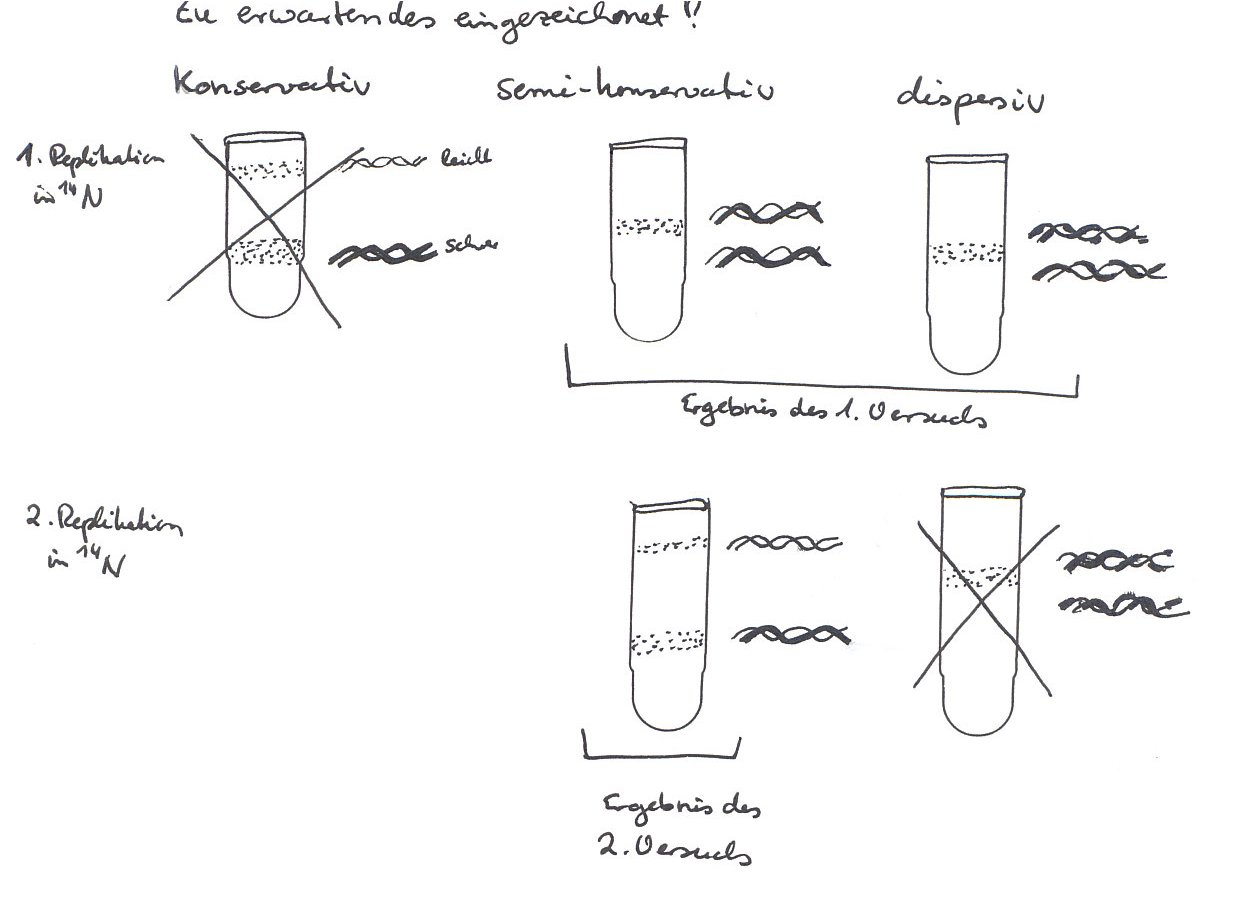 Zu erwartendes eingezeichnet !!
Konservativ
semi-konservativ
dispersiv
1. Replikation
in ¹⁴N
leicht
schwer
Ergebnis des 1. Versuchs
2. Replikation
in ¹⁴N
Ergebnis des
2. Versuchs